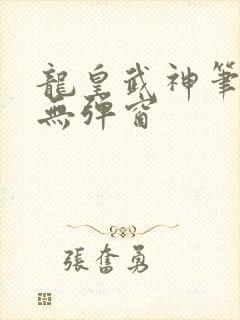 龍皇武神筆
無彈窗
張奮勇